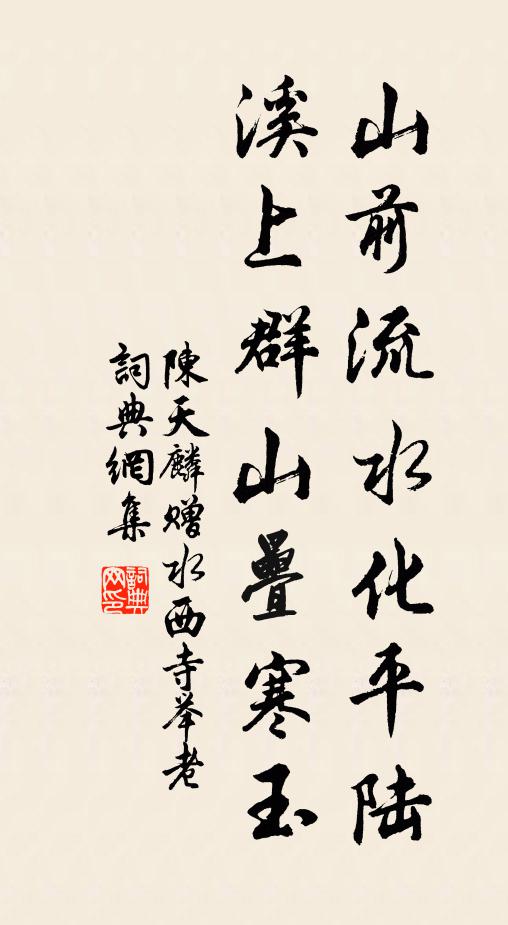 山前流水化平陆
溪上群山疊寒玉
陳天麟贈水西寺举老
詞典網集
詞典
网印